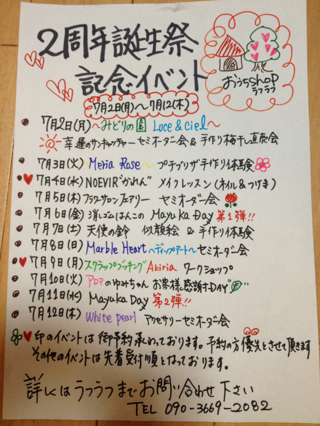 2周年誕生祭
記念イベント
おうちshop
ラフラフ
7月2日(月)〜7月12(木)
7月2日(月)〜みどりの園 Lace & ciel〜
幸運のサンキャッチャーセミオーダー会&手作り梅干し直売会
7月3日(火) Meria Rose〜プチプリザ手作り体験
7月4日(水) NOEVIR"かれん"メイクレッスン(ネイル&つけま)
7月5日(木) フラワーサロンフェアリー セミオーダー会
7月6日(金) 消しごむはんこの Mayuka Day 第1弾!!
7月7日(土) 天使の鈴 似顔絵&手作り体験
7月8日(日) Marble Heart〜ディップアート〜セミオーダー会
7月9日(月) スクラップブッキング Akiria ワークショップ
7月10日(火) POPのゆみちゃん お客様感謝DAY
7月11日(水) Mayuka Day 第2弾!!
7月12日(木) White pearl アクセサリーセミオーダー会
印のイベントは御予約承わっております。予約の方優先とさせて頂きます
その他のイベントは先着受付順となっております。
詳しくはラフラフまでお問い合わせ下さい
TEL 090-3669-2082